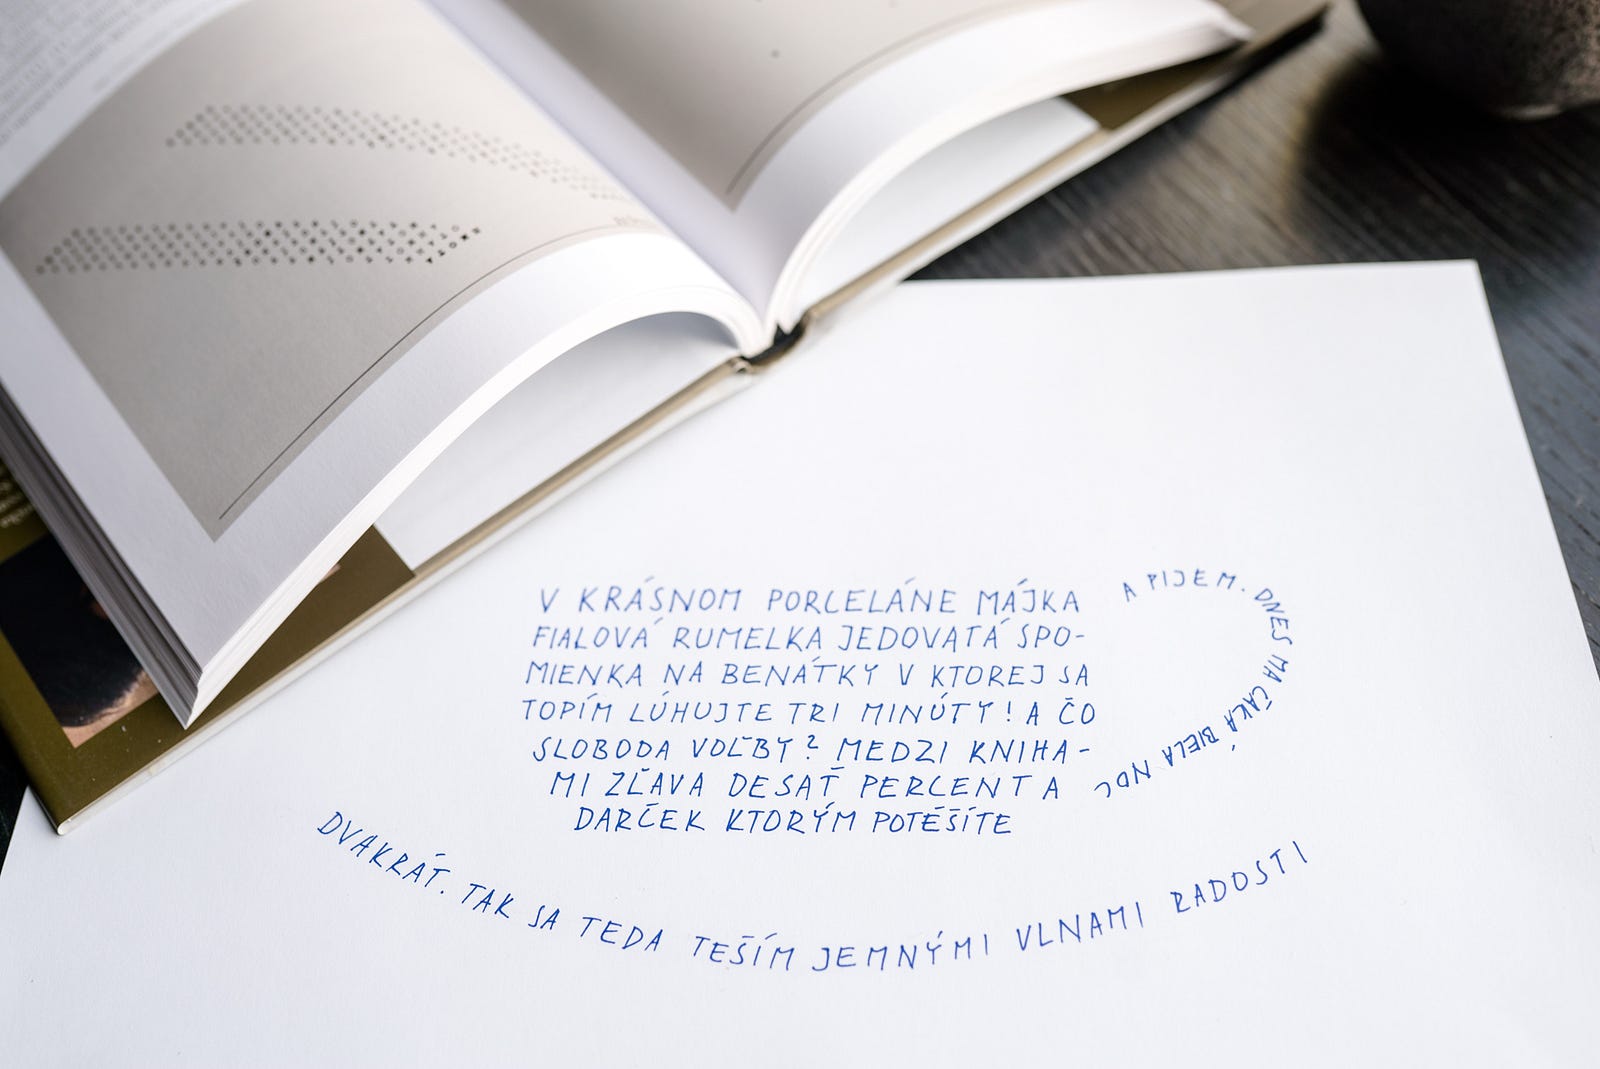 V KRÁSNOM PORCELÁNE MÁJKA
FIALOVÁ RUMELKA JEDOVATÁ SPO-
MIENKA NA BENÁTKY V KTOREJ SA
TOPÍM LÚHUJTE TRI MINÚTY! A ČO
SLOBODA VOĽBY? MEDZI KNIHA-
MI ZĽAVA DESAŤ PERCENT A
DARČEK KTORÝM POTĚŠÍTE
DVAKRÁT. TAK SA TEDA TEŠÍM JEMNÝMI VLNAMI RADOSTI
A PIJEM. DNES MA ČAKÁ BIELA NOC